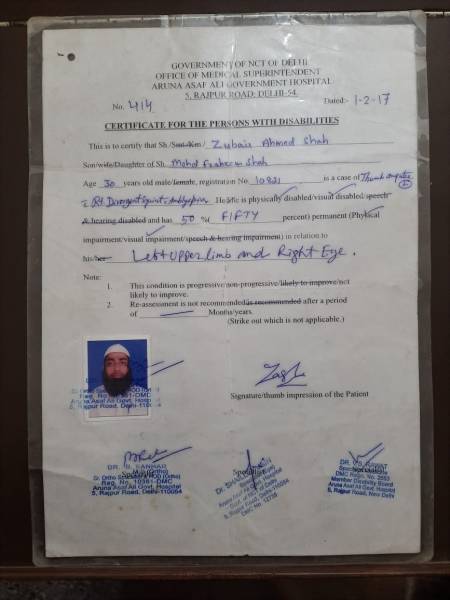 GOVERNMENT OF NCT OF DELHI
OFFICE OF MEDICAL SUPERINTENDENT
ARUNA ASAF ALI GOVERNMENT HOSPITAL
5, RAJPUR ROAD: DELHI-54.
No. 414 Dated:- 1-2-17
CERTIFICATE FOR THE PERSONS WITH DISABILITIES
This is to certify that Sh /Smt./Km / Zubair Ahmed Shah
Son/wife/Daughter of Sh. Mohd Shah
Age 30 years old male/female, registration No. 10821 is a case of Thumb
Rt. Divergent Squint He/she is physically disabled/visual disabled/speech
& hearing disabled and has 50 % ( FIFTY percent) permanent (Physical
impairment/visual impairment/speech & hearing impairment) in relation to
his/her Left Upper limb and Right Eye.
Note:
1. This condition is progressive/non-progressive/likely to improve/not
likely to improve.
2. Re-assessment is not recommended/is recommended after a period
of Months/years.
(Strike out which is not applicable.)
Reg. No. 10361-DMC
Aruna Asaf Ali Govt. Hospital
5, Rajpur Road, Delhi-110054
Signature/thumb impression of the Patient
Sr. Ortho
Reg. No. 10361-DMC
Aruna Asaf Ali Govt. Hospital
5, Rajpur Road, Delhi-110054
Member Disability Board
Aruna Asaf Ali Govt. Hospital
5, Rajpur Road, New Delhi